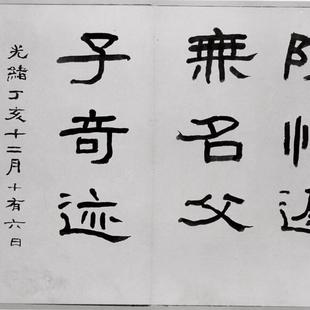 無名父
子奇迹
光緒丁亥十二月十有六日